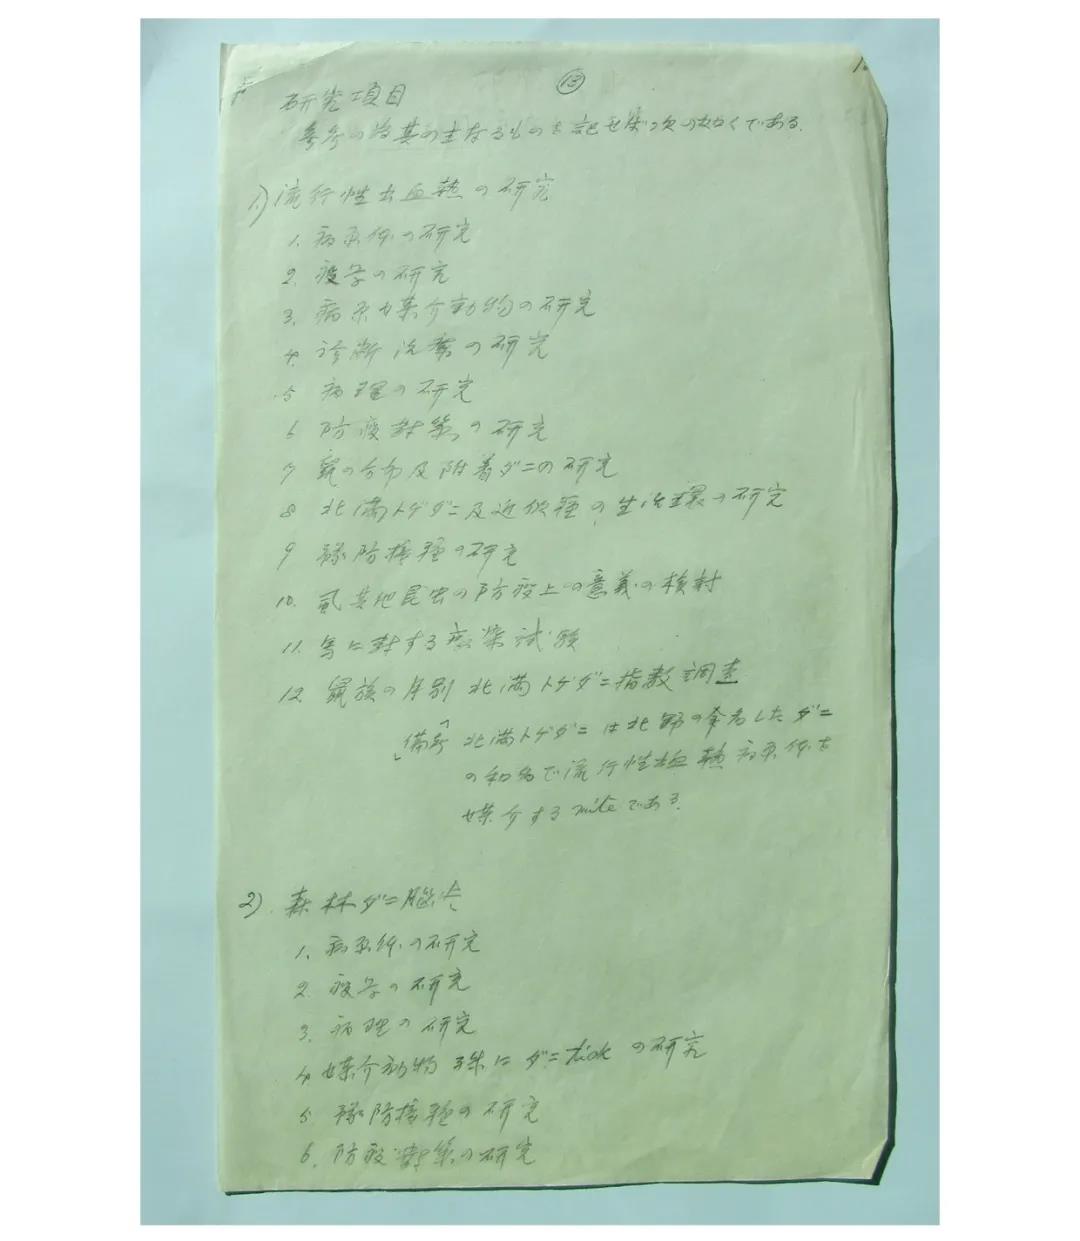 ⑬
研究項目
参考の為其の主なるものを記せば次の如くである.
1.) 流行性出血熱の研究
1. 病原体の研究
2. 疫学の研究
3. 病原媒介動物の研究
4. 診断治療の研究
5 病理の研究
6 防疫対策の研究
7 鼠の分布及附着ダニの研究
8 北満トゲダニ及近似種の生活環の研究
9 豫防接種の研究
10. 虱其他昆虫の防疫上の意義の検討
11. 馬に対する感染試験
12 鼠族の月別北満トゲダニ指数調査
備考 北満トゲダニは北野の命名したダニ
の和名で流行性出血熱病原体を
媒介するmiteである.
2). 森林ダニ脳炎
1. 病原体の研究
2. 疫学の研究
3. 病理の研究
4 媒介動物 殊にダニtickの研究
5 豫防接種の研究
6. 防疫対策の研究